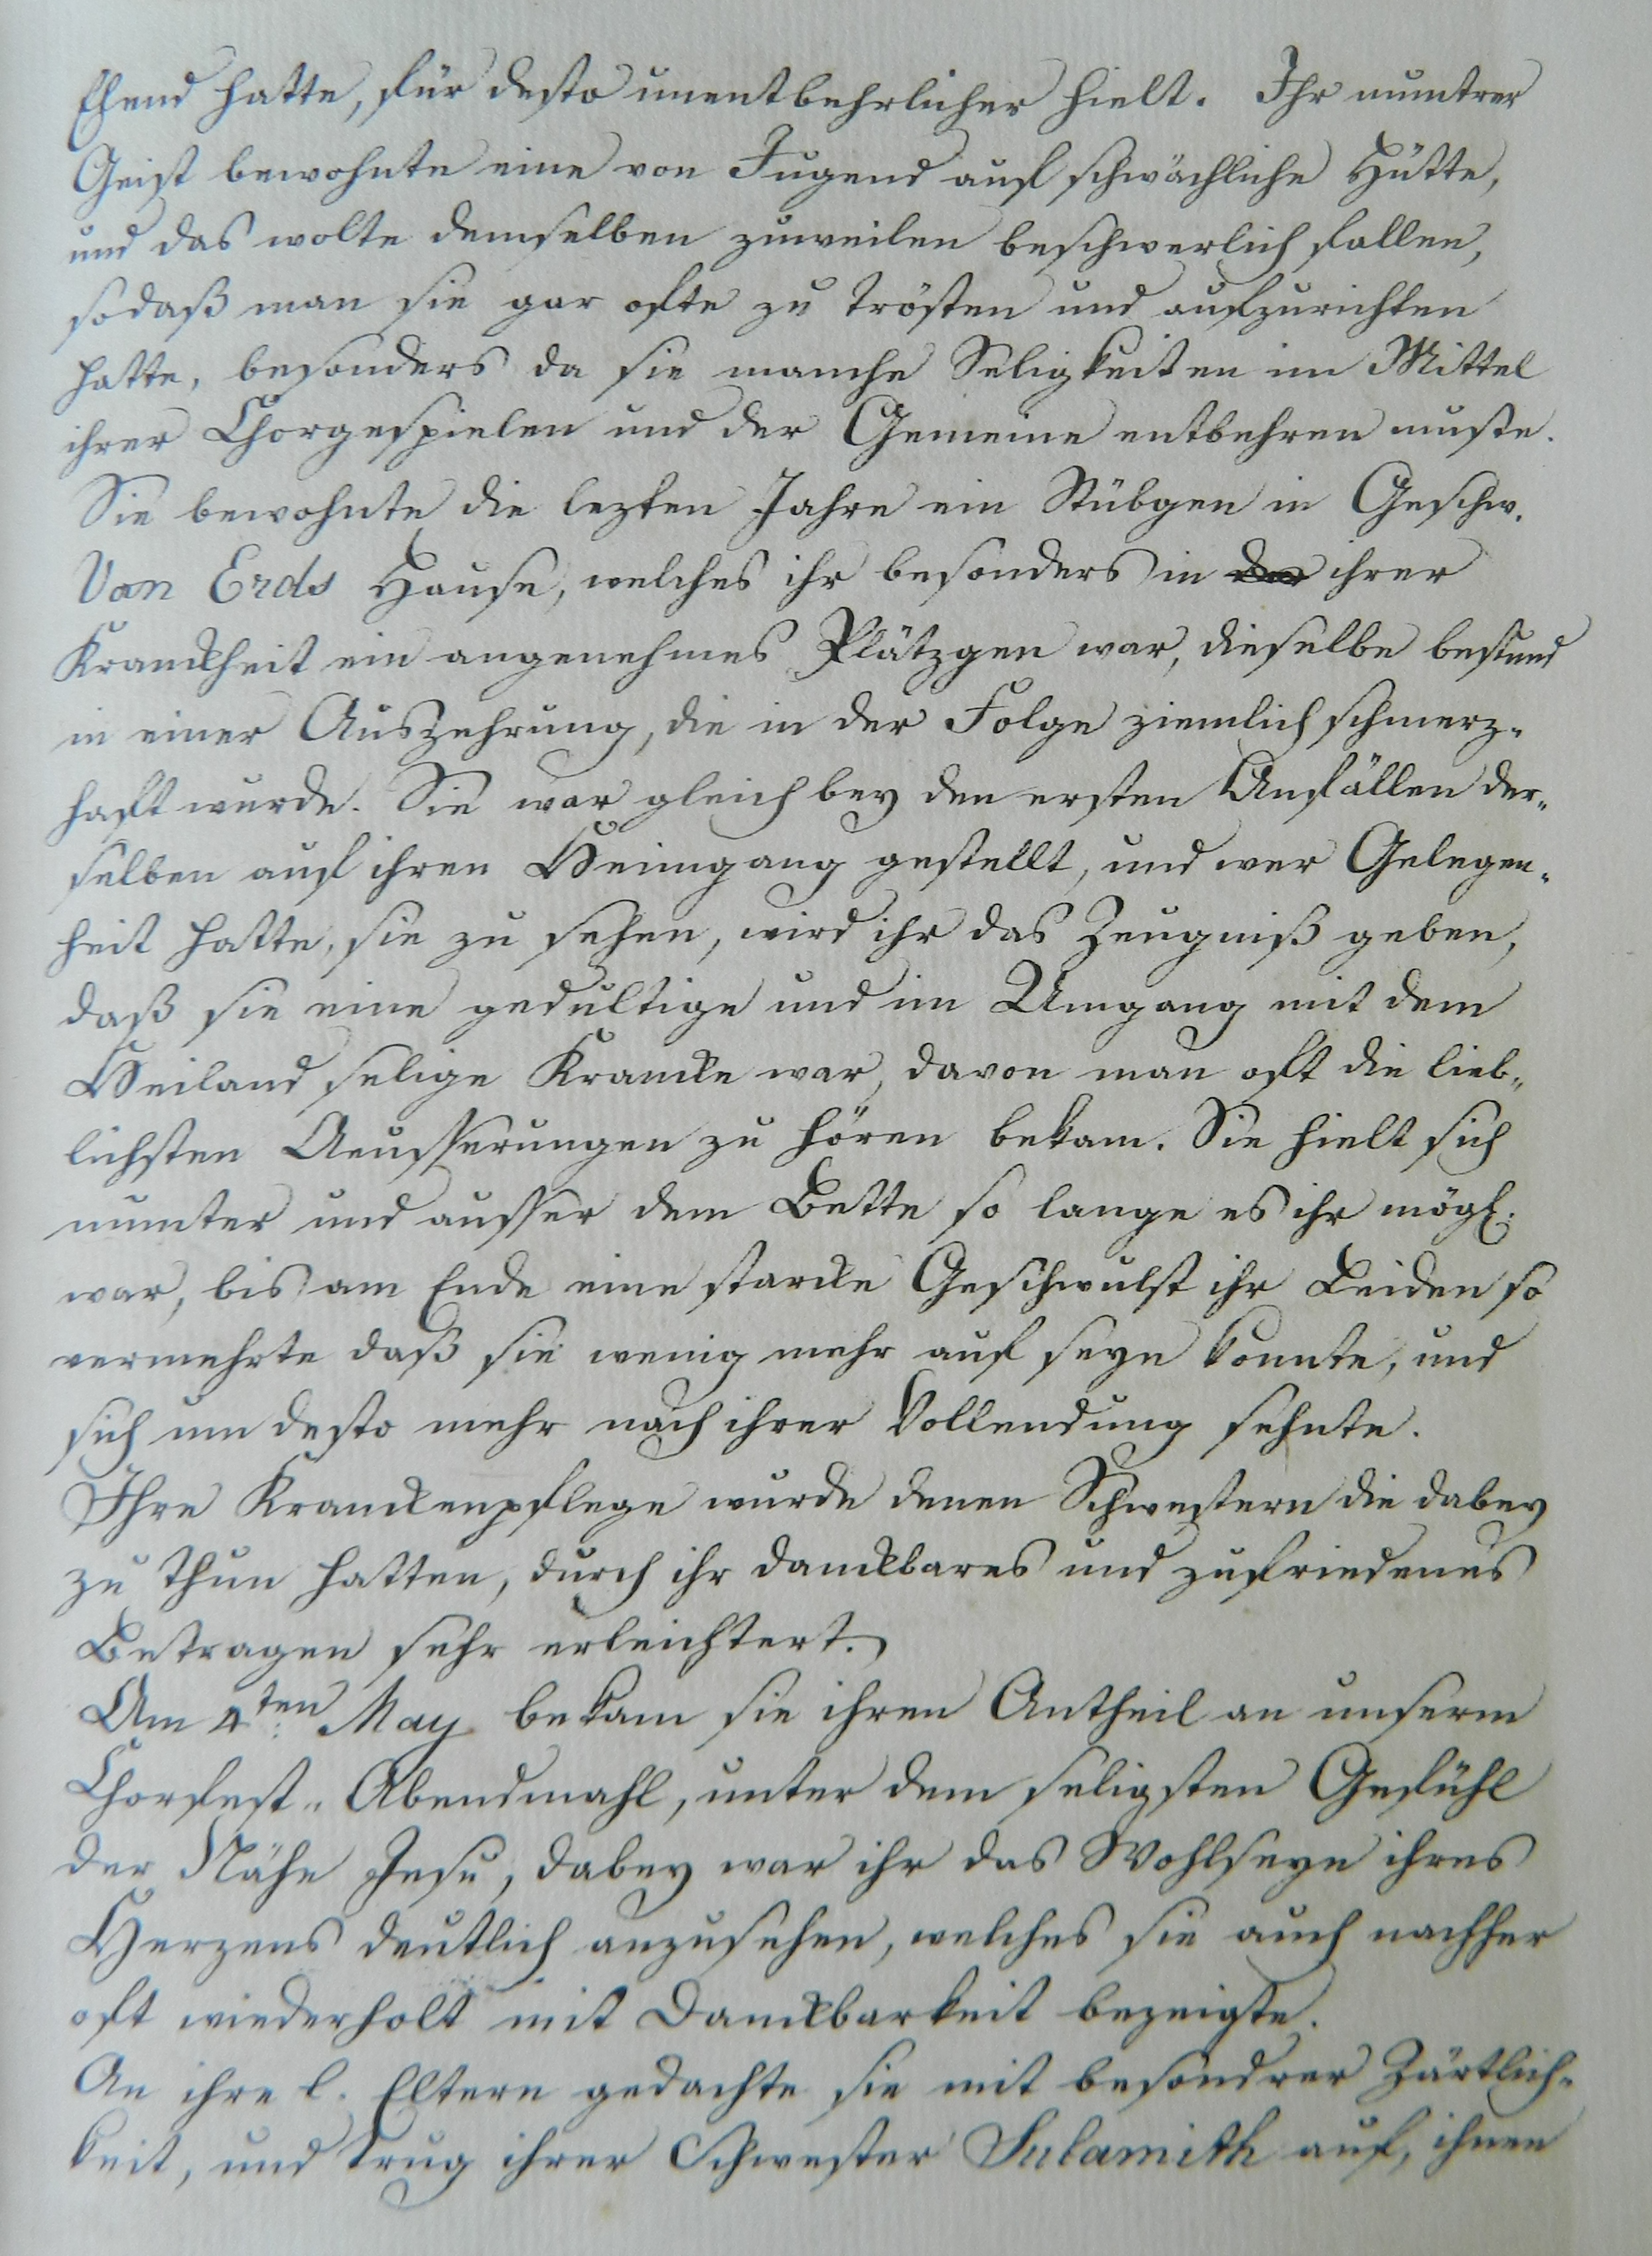 Elend hatte, für desto unentbehrlicher hielt. Ihr muntrer
Geist bewohnte eine von Jugend auf schwächliche Hütte,
und das wolte demselben zuweilen beschwerlich fallen,
sodaß man sie gar ofte zu trösten und aufzurichten
hatte, besonders da sie manche Seligkeiten im Mittel
ihrer Chorgespielen und der Gemeine entbehren muste.
Sie bewohnte die lezten Jahre ein Stübgen in Geschw.
Van Erds Hause, welches ihr besonders in der ihrer
Kranckheit ein angenehmes Plätzgen war, dieselbe bestund
in einer Auszehrung, die in der Folge ziemlich schmerz-
haft wurde. Sie war gleich bey den ersten Anfällen der-
selben auf ihren Heimgang gestellt, und wer Gelegen-
heit hatte, sie zu sehen, wird ihr das Zeugniß geben,
daß sie eine gedultige und im Umgang mit dem
Heiland selige Krancke war, davon man oft die lieb-
lichsten Aeusserungen zu hören bekam. Sie hielt sich
munter und ausser dem Bette so lange es ihr mögl.
war, bis am Ende eine starcke Geschwulst ihr Leiden so
vermehrte daß sie wenig mehr auf seyn konnte, und
sich um desto mehr nach ihrer Vollendung sehnte.
Ihre Kranckenpflege wurde denen Schwestern die dabey
zu thun hatten, durch ihr danckbares und zufriedenes
Betragen sehr erleichtert.
Am 4ten May bekam sie ihren Antheil an unserm
Chorfest-Abendmahl, unter dem seligsten Gefühl
der Nähe Jesu, dabey war ihr das Wohlseyn ihres
Herzens deutlich anzusehen, welches sie auch nachher
oft wiederholt mit Danckbarkeit bezeigte.
An ihre l. Eltern gedachte sie mit besondrer Zärtlich-
keit, und trug ihrer Schwester Sulamith auf, ihnen